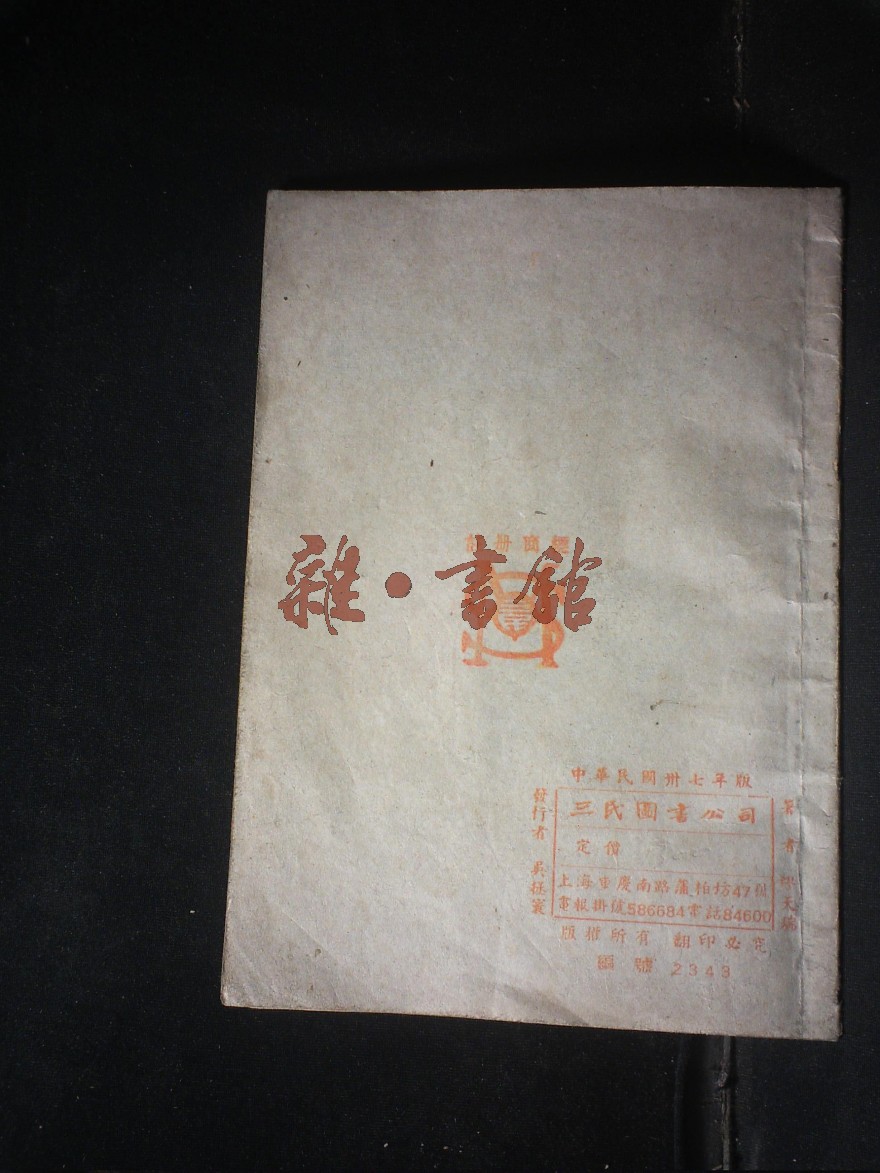 雜·書館
標商册
中華民國卅七年版
三民圖書公司
定價
上海重慶南路蕭柏坊47號
電報掛號586684電話84600
發行者 吳拯寰
著者 天
版權所有 翻印必究
編號 2343